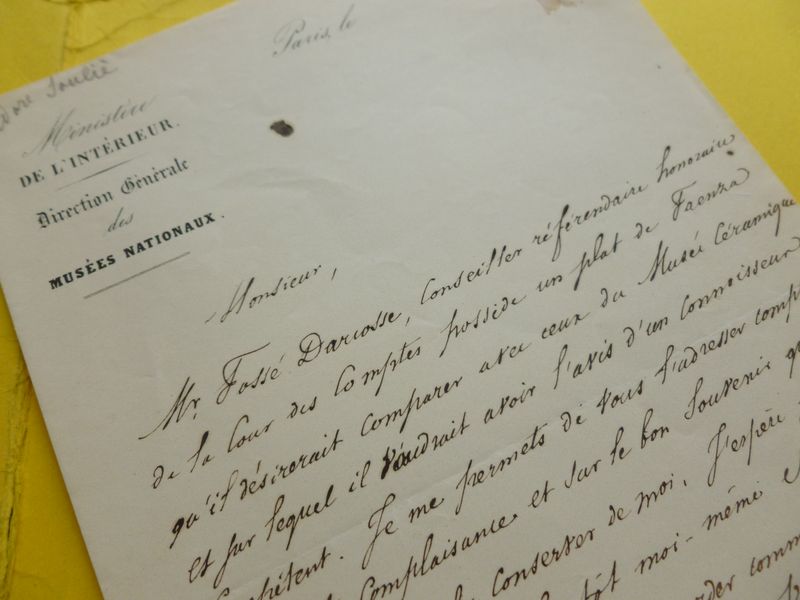 Soulié
Paris, le
Ministère
DE L'INTÉRIEUR.
Direction Générale
des
MUSÉES NATIONAUX.
Monsieur,
Mr. Fossé Darcosse, Conseiller référendaire honoraire
de la Cour des Comptes possède un plat de Faenza
qu'il désirerait comparer avec ceux du Musée Céramique
et sur lequel il voudrait avoir l'avis d'un connoisseur
Je me permets de vous l'adresser
complaisance et sur le bon souvenir
conserver de moi. J'espère
moi-même